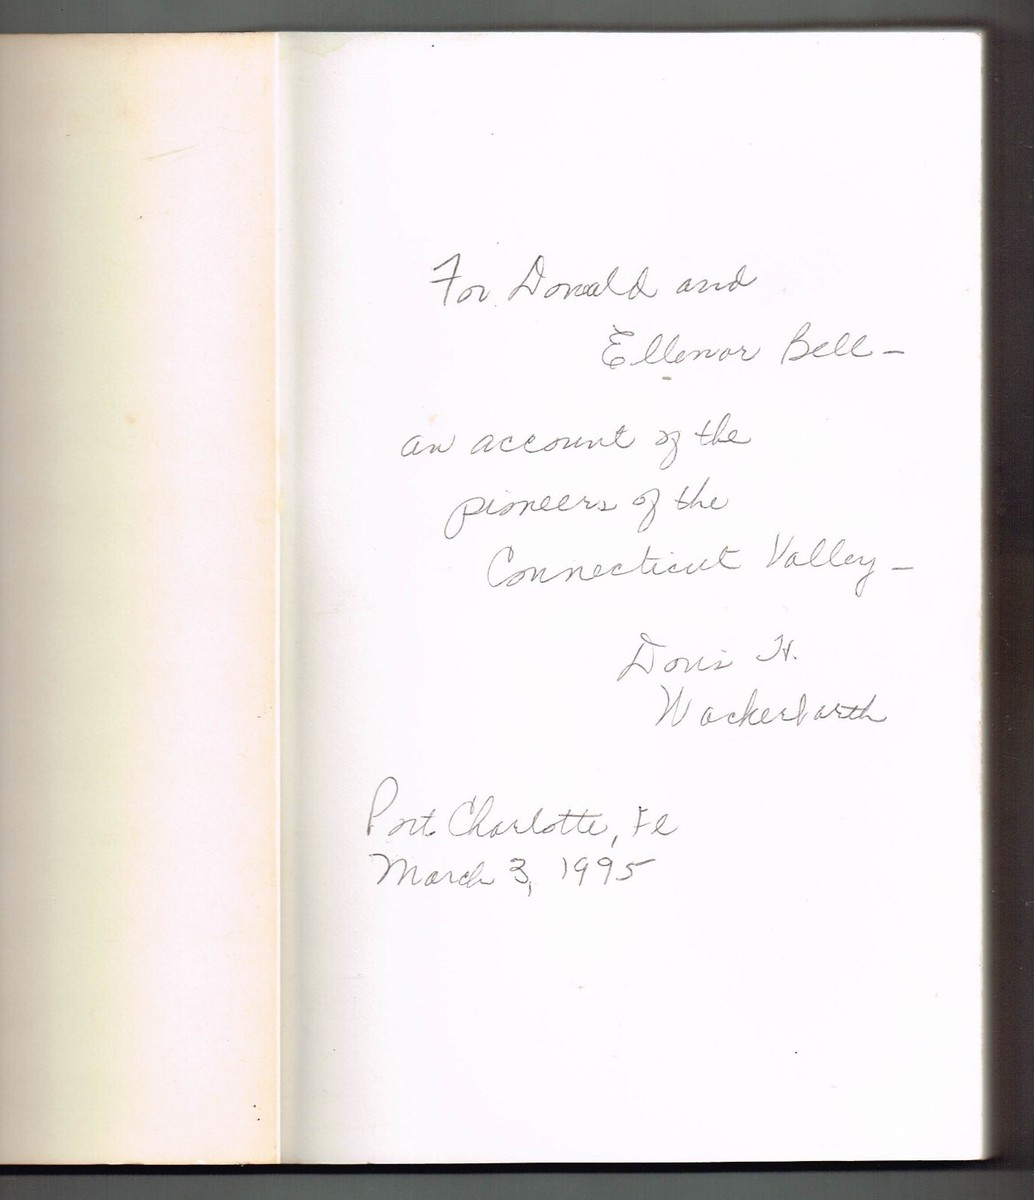 For Donald and
Ellenor Bell –
an account of the
pioneers of the
Connecticut Valley –
Doris H.
Wackerbarth
Port Charlotte, Fl
March 3, 1995